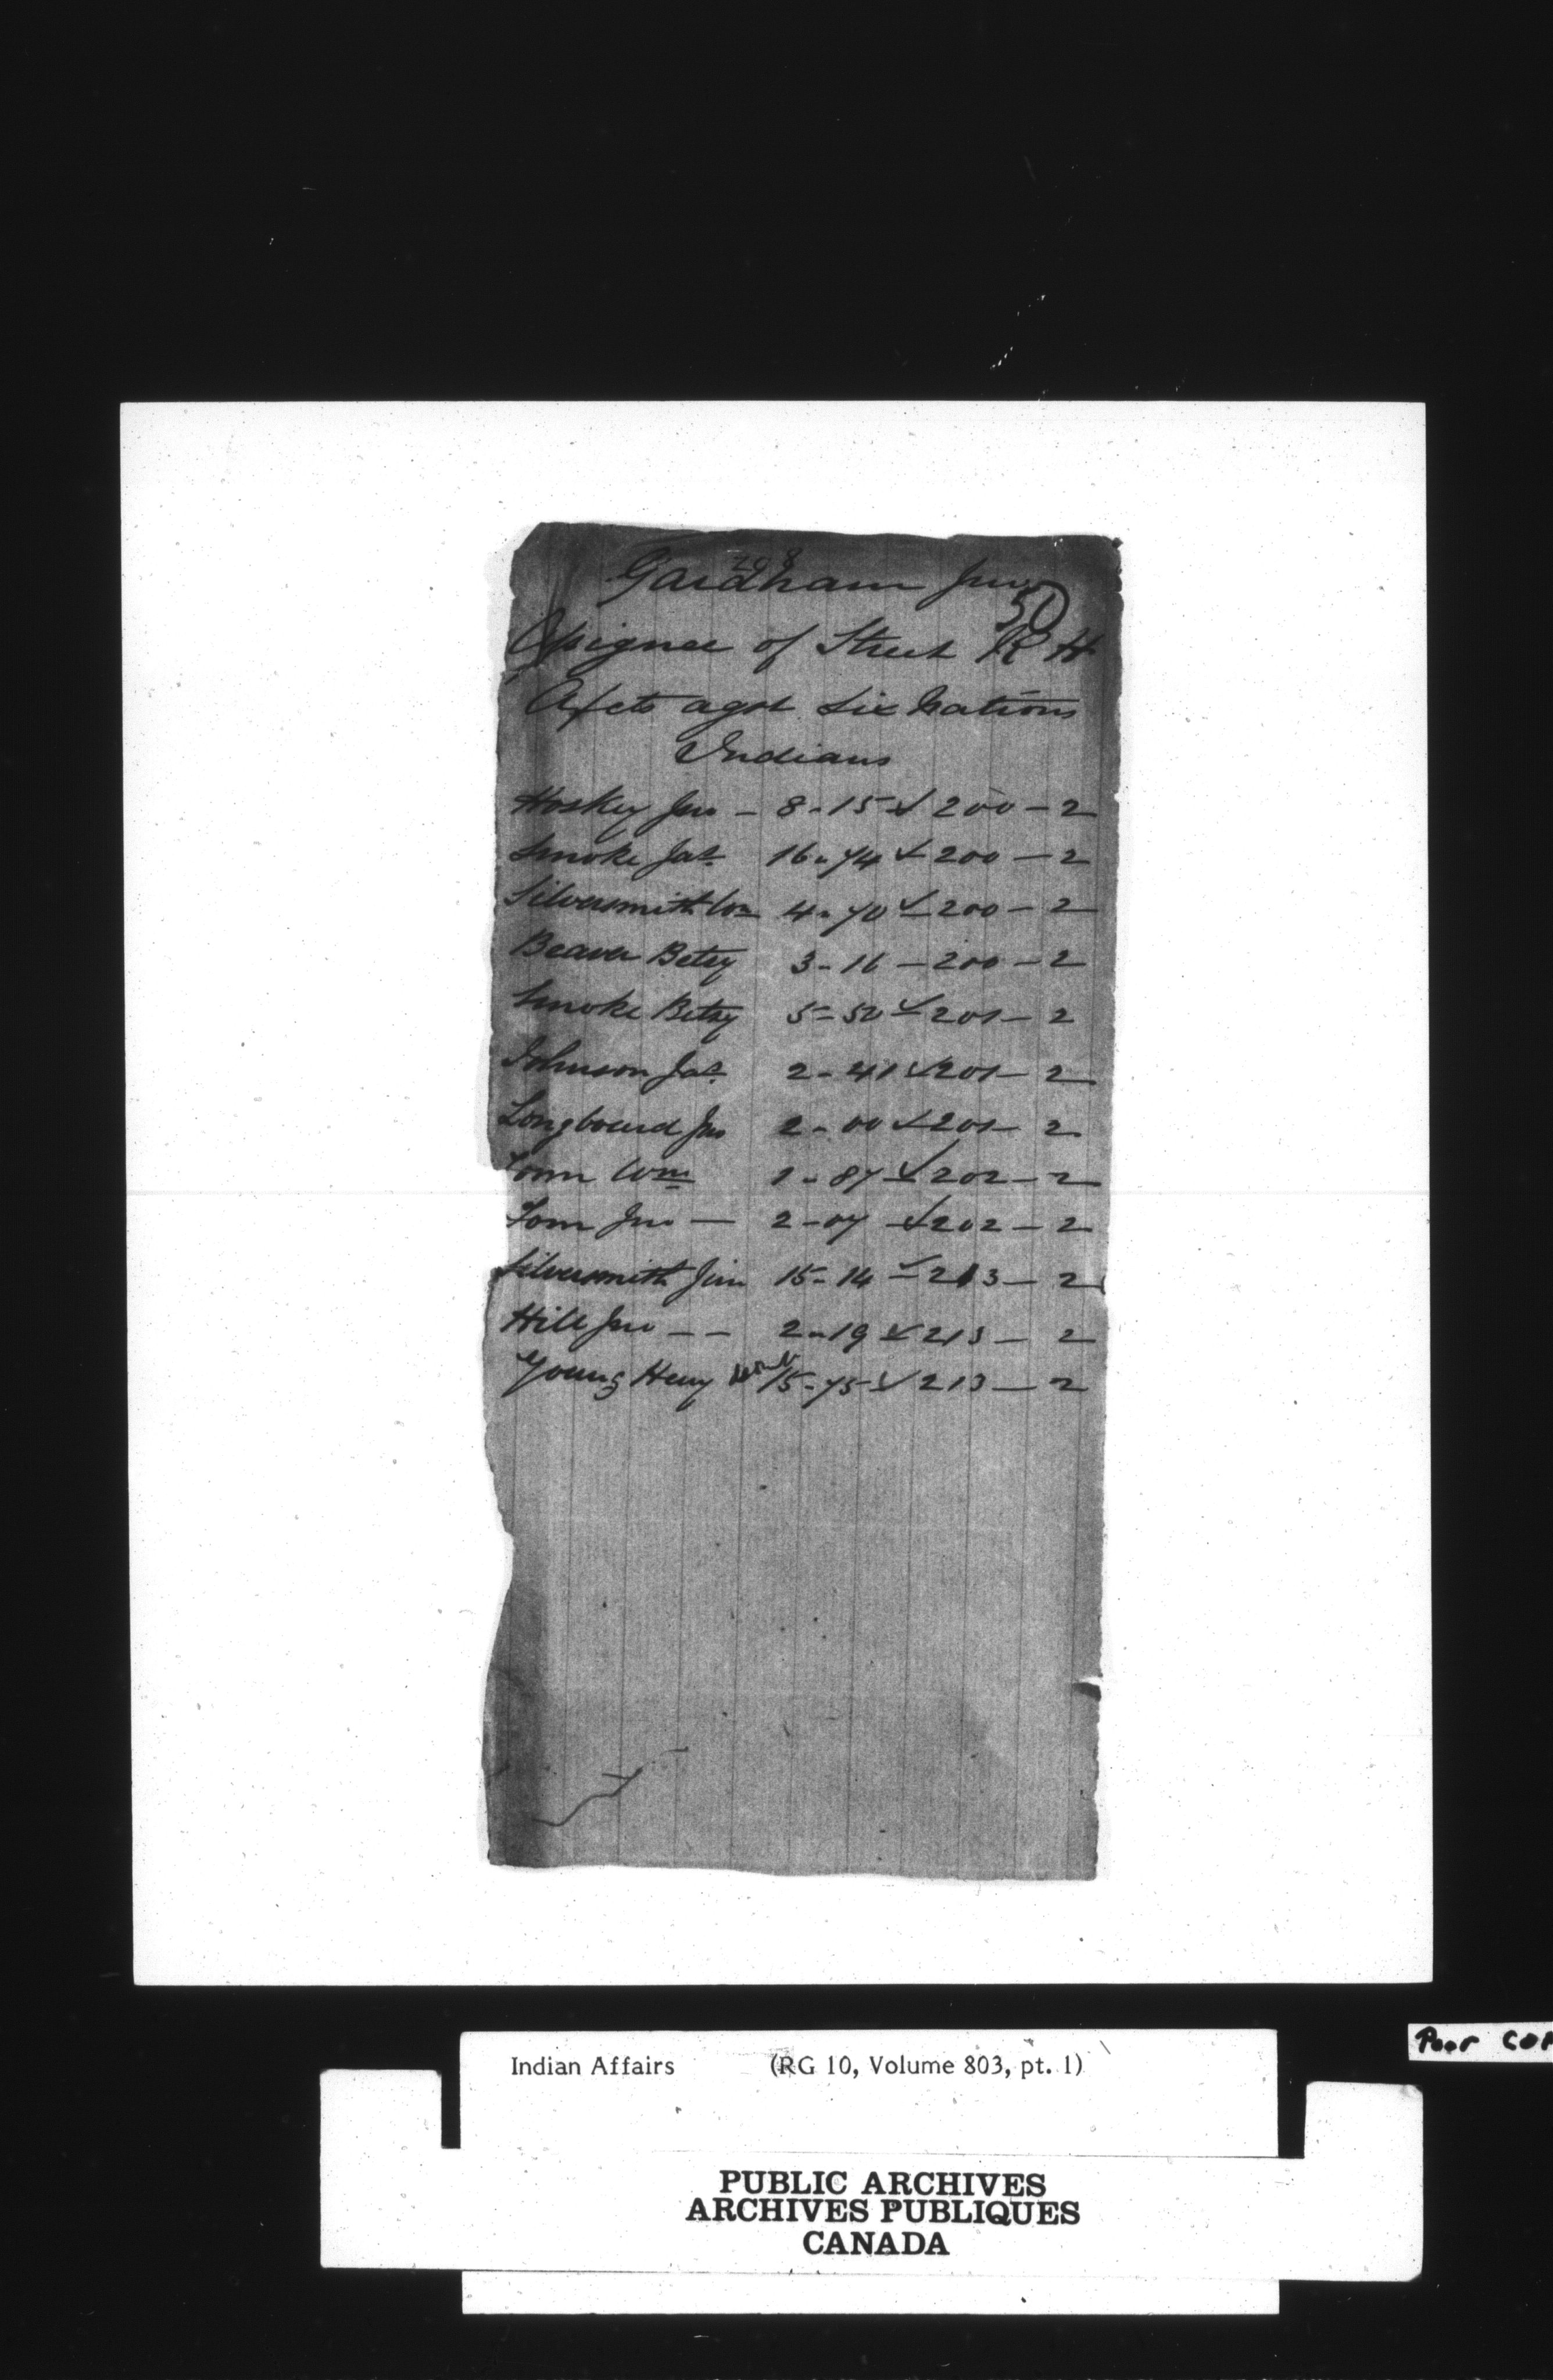 208
Gardham Jno
50
Assignee of Street R H
Accts agst Six Nations
Indians
Hoskey Jno - 8-15 ✓ 200 - 2
Smoke Jas 16-74 ✓ 200 - 2
Silversmith Wm 4-70 ✓ 200 - 2
Beaver Betsy 3-16 - 200 - 2
Smoke Betsy 5-50 ✓ 201 - 2
Johnson Jas 2-41 ✓ 201 - 2
Longboard Jno 2-00 ✓ 201 - 2
Tom Wm 1-87 ✓ 202 - 2
Tom Jno - 2-07 ✓ 202 - 2
Silversmith Jim 15-14 ✓ 213 - 2
Hill Jno - - 2-19 ✓ 213 - 2
Young Henry 15-75 ✓ 213 - 2
Poor COP
Indian Affairs (RG 10, Volume 803, pt. 1)
PUBLIC ARCHIVES
ARCHIVES PUBLIQUES
CANADA